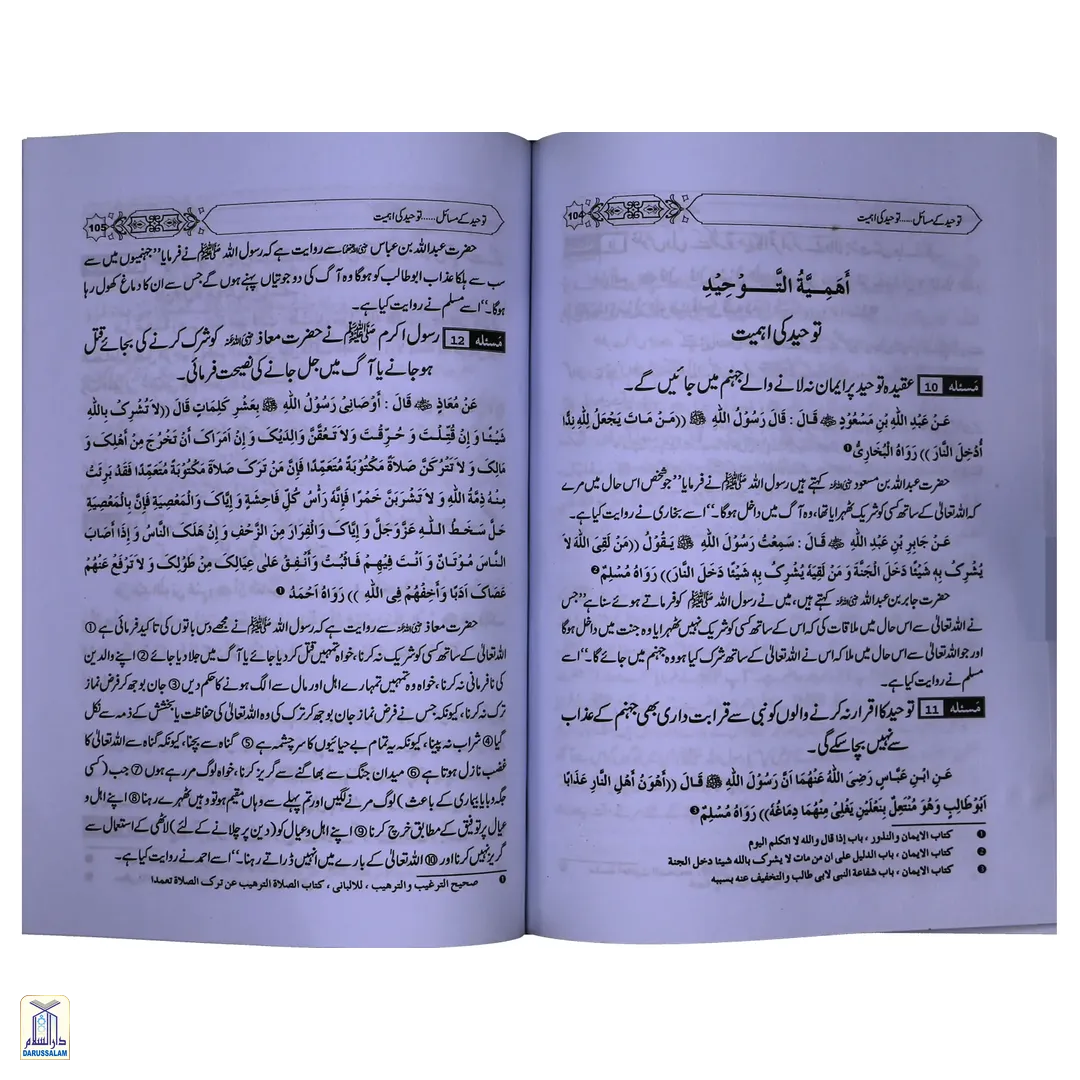 104
توحید کے مسائل.....توحید کی اہمیت
أَهَمِيَّةُ التَّوْحِيْدِ
توحید کی اہمیت
مَسئله 10 عقیدہ توحید پر ایمان نہ لانے والے جہنم میں جائیں گے۔
عَنْ عَبْدِ اللهِ بْنِ مَسْعُوْدٍ ﷺ قَالَ : قَالَ رَسُوْلُ اللهِ ﷺ ((مَنْ مَاتَ يَجْعَلُ لِلّٰهِ نِدًّا
أُدْخِلَ النَّارَ )) رَوَاهُ الْبُخَارِيُّ ❶
حضرت عبداللہ بن مسعود رضی اللہ عنہ کہتے ہیں رسول اللہ ﷺ نے فرمایا ”جو شخص اس حال میں مرے
کہ اللہ تعالیٰ کے ساتھ کسی کو شریک ٹھہراتا تھا، وہ آگ میں داخل ہوگا۔“ اسے بخاری نے روایت کیا ہے۔
عَنْ جَابِرِ بْنِ عَبْدِ اللهِ قَالَ : سَمِعْتُ رَسُوْلَ اللهِ ﷺ يَقُوْلُ ((مَنْ لَقِيَ اللهَ لاَ
يُشْرِكُ بِهِ شَيْئًا دَخَلَ الْجَنَّةَ وَ مَنْ لَقِيَهُ يُشْرِكُ بِهِ شَيْئًا دَخَلَ النَّارَ)) رَوَاهُ مُسْلِمٌ ❷
حضرت جابر بن عبداللہ رضی اللہ عنہ کہتے ہیں، میں نے رسول اللہ ﷺ کو فرماتے ہوئے سنا ہے ”جس
نے اللہ تعالیٰ سے اس حال میں ملاقات کی کہ اس کے ساتھ کسی کو شریک نہیں ٹھہرایا وہ جنت میں داخل ہوگا
اور جو اللہ تعالیٰ سے اس حال میں ملا کہ اس نے اللہ تعالیٰ کے ساتھ شرک کیا ہو وہ جہنم میں جائے گا۔“ اسے
مسلم نے روایت کیا ہے۔
مَسئله 11 توحید کا اقرار نہ کرنے والوں کو نبی سے قرابت داری بھی جہنم کے عذاب
سے نہیں بچا سکے گی۔
عَنِ ابْنِ عَبَّاسٍ رَضِيَ اللهُ عَنْهُمَا اَنَّ رَسُوْلَ اللهِ ﷺ قَالَ ((أَهْوَنُ أَهْلِ النَّارِ عَذَابًا
اَبُوْ طَالِبٍ وَهُوَ مُنْتَعِلٌ بِنَعْلَيْنِ يَغْلِيْ مِنْهُمَا دِمَاغُهُ)) رَوَاهُ مُسْلِمٌ ❸
❶ كتاب الايمان والنذور ، باب إذا قال والله لا اتكلم اليوم
❷ كتاب الايمان، باب الدليل على ان من مات لا يشرك بالله شيئا دخل الجنة
❸ كتاب الايمان ، باب شفاعة النبى لابى طالب والتخفيف عنه بسببه
105
توحید کے مسائل......توحید کی اہمیت
حضرت عبداللہ بن عباس رضی اللہ عنہما سے روایت ہے کہ رسول اللہ ﷺ نے فرمایا ”جہنمیوں میں سے
سب سے ہلکا عذاب ابو طالب کو ہوگا وہ آگ کی دو جوتیاں پہنے ہوں گے جس سے ان کا دماغ کھول رہا
ہوگا۔“ اسے مسلم نے روایت کیا ہے۔
مَسئله 12 رسول اکرم ﷺ نے حضرت معاذ رضی اللہ عنہ کو شرک کرنے کی بجائے قتل
ہو جانے یا آگ میں جل جانے کی نصیحت فرمائی۔
عَنْ مُعَاذٍ قَالَ : أَوْصَانِيْ رَسُوْلُ اللهِ ﷺ بِعَشْرِ كَلِمَاتٍ قَالَ ((لاَ تُشْرِكْ بِاللهِ
شَيْئًا وَ إِنْ قُتِلْتَ وَ حُرِّقْتَ وَلاَ تَعُقَّنَّ وَالِدَيْكَ وَ إِنْ أَمَرَاكَ أَنْ تَخْرُجَ مِنْ أَهْلِكَ وَ
مَالِكَ وَ لاَ تَتْرُكَنَّ صَلاَةً مَكْتُوْبَةً مُتَعَمِّدًا فَإِنَّ مَنْ تَرَكَ صَلاَةً مَكْتُوْبَةً مُتَعَمِّدًا فَقَدْ بَرِئَتْ
مِنْهُ ذِمَّةُ اللهِ وَ لاَ تَشْرَبَنَّ خَمْرًا فَإِنَّهُ رَأْسُ كُلِّ فَاحِشَةٍ وَ إِيَّاكَ وَالْمَعْصِيَةَ فَإِنَّ بِالْمَعْصِيَةِ
حَلَّ سَخَطُ اللهِ عَزَّوَجَلَّ وَ إِيَّاكَ وَالْفِرَارَ مِنَ الزَّحْفِ وَ إِنْ هَلَكَ النَّاسُ وَ إِذَا أَصَابَ
النَّاسَ مُوْتَانٌ وَ أَنْتَ فِيْهِمْ فَاثْبُتْ وَأَنْفِقْ عَلَى عِيَالِكَ مِنْ طَوْلِكَ وَ لاَ تَرْفَعْ عَنْهُمْ
عَصَاكَ اَدَبًا وَأَخِفْهُمْ فِي اللهِ )) رَوَاهُ اَحْمَدُ ❶
حضرت معاذ رضی اللہ عنہ سے روایت ہے کہ رسول اللہ ﷺ نے مجھے دس باتوں کی تاکید فرمائی ہے ①
اللہ تعالیٰ کے ساتھ کسی کو شریک نہ کرنا، خواہ تمہیں قتل کر دیا جائے یا آگ میں جلا دیا جائے ② اپنے والدین
کی نافرمانی نہ کرنا، خواہ وہ تمہیں تمہارے اہل اور مال سے الگ ہونے کا حکم دیں ③ جان بوجھ کر فرض نماز
ترک نہ کرنا، کیونکہ جس نے فرض نماز جان بوجھ کر ترک کی وہ اللہ تعالیٰ کی حفاظت یا بخشش کے ذمہ سے نکل
گیا ④ شراب نہ پینا، کیونکہ یہ تمام بے حیائیوں کا سرچشمہ ہے ⑤ گناہ سے بچنا، کیونکہ گناہ سے اللہ تعالیٰ کا
غضب نازل ہوتا ہے ⑥ میدان جنگ سے بھاگنے سے گریز کرنا، خواہ لوگ مر رہے ہوں ⑦ جب (کسی
جگہ وبا یا بیماری کے باعث) لوگ مرنے لگیں اور تم پہلے سے وہاں مقیم ہو تو وہیں ٹھہرے رہنا ⑧ اپنے اہل و
عیال پر توفیق کے مطابق خرچ کرنا ⑨ اپنے اہل و عیال کو (دین پر چلانے کے لئے) لاٹھی کے استعمال سے
گریز نہیں کرنا اور ⑩ اللہ تعالیٰ کے بارے میں انہیں ڈراتے رہنا۔“ اسے احمد نے روایت کیا ہے۔
❶ صحيح الترغيب والترهيب ، للالبانى ، كتاب الصلاة الترهيب عن ترك الصلاة تعمدا
دارالسلام
DARUSSALAM